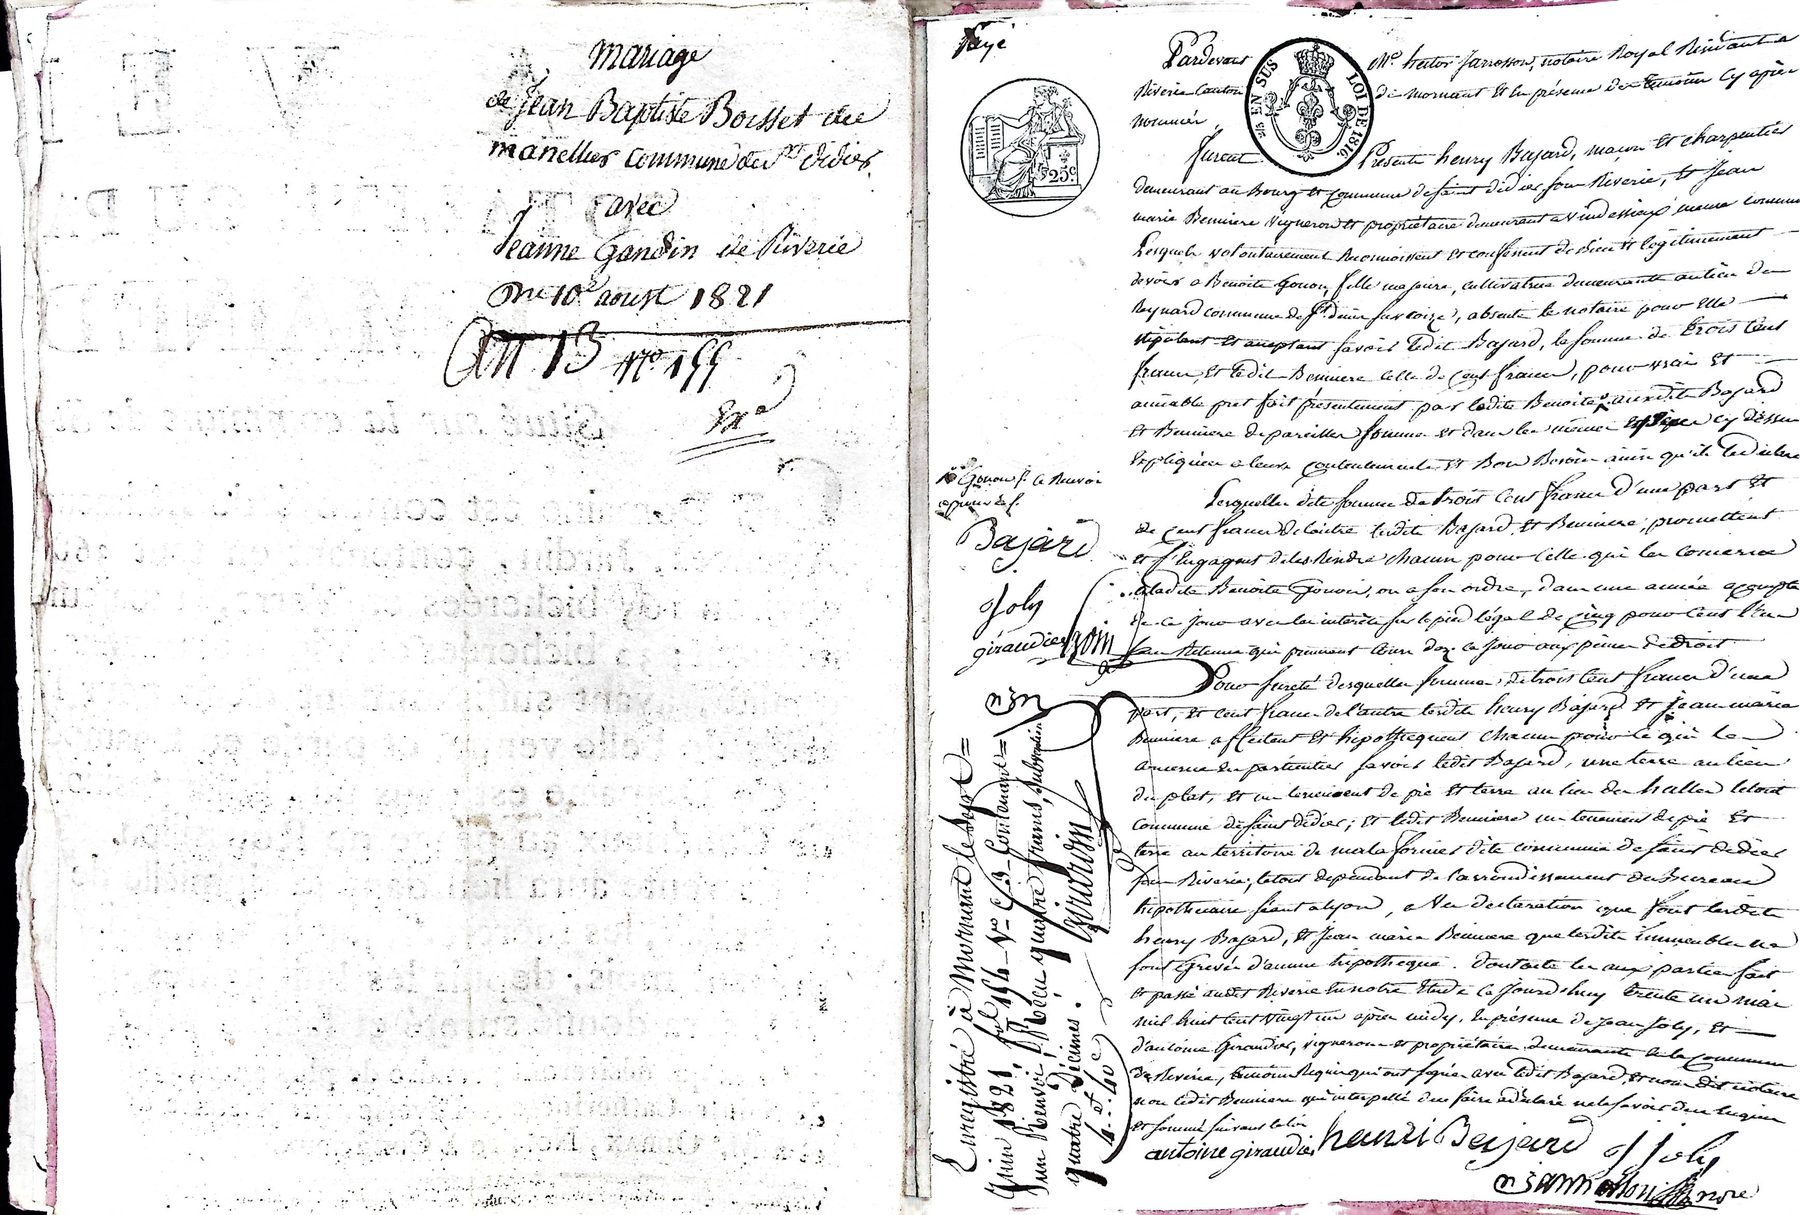 mariage
de Jean Baptiste Boisset de
manellier commune de St didier
avec
Jeanne Gandin de Riverie
Du 10e aoust 1821
An 13 No 155
Ex a
payé
Pardevant Me hector Jarrosson, notaire Royal Résidant a
Riverie Canton de mornant Et En présence des témoins cy après
nommés,
EN SUS
LOI DE 1816
25c
furent Présents henry Bajard, maçon et charpentier
demeurant au Bourg et commune de saint didier sous Riverie, Et Jean
marie Benniere vigneron et propriétaire demeurant a vindessieux même commune
Lesquels volontairement Reconnoissent et confessent de bien et légitimement
devoir a Benoite Gonon, fille majeure, cultivatrice demeurante au lieu du
Reynard commune de St denis sur coize, absente le notaire pour elle
stipulant et acceptant savoir ledit Bajard, la somme de trois cent
francs, Et ledit Benniere celle de cent francs, pour vrai et
amiable pret fait présentement par ladite Benoite auxdits Bajard
et Benniere de pareilles sommes et dans les mêmes Espèces cy dessus
Expliquées a leurs contentements Et Bon Besoin ainsi qu'ils le déclarent
Gonon S. le Renvoi
aprouvé S.
Bajard
J Joly
giraudier
Lesquelles dite somme de trois cent francs d'une part et
de cent francs de l'autre lesdits Bajard et Benniere, promettent
et s'engagent de les Rendre chacun pour celle qui les concerne
a ladite Benoite Gonon, ou a son ordre, dans une année a compter
de ce jour avec les intérêts sur le pied légal de cinq pour cent l'an
sans Retenue qui prennent cours dez ce jour aux peines de droit
Pour sureté desquelles sommes de trois cent francs d'une
part, et cent francs de l'autre lesdits henry Bajard et Jean marie
Benniere affectent et hipothequent chacun pour ce qui le
concerne en particulier savoir ledit Bajard, une terre au lieu
du plat, et un tenement de pré et terre au lieu des halles le tout
commune de saint didier; et ledit Benniere un tenement de pré et
terre au territoire de malaformes dite commune de saint didier
sous Riverie, le tout dependant de l'arrondissement du Bureau
hipothécaire séant a lyon, a la déclaration que font lesdits
henry Bajard, et Jean marie Benniere que lesdits immeubles ne
sont Grevés d'aucune hipotheque. Dont acte lu aux parties fait
et passé audit Riverie En notre Etude ce jourd'huy trente un mai
mil huit cent vingt un après midy, En présence de Jean Joly, et
d'antoine Giraudier, vignerons et propriétaires demeurants en la commune
de Riverie, témoins Requis qui ont signé avec ledit Bajard, et nous dit notaire
non ledit Benniere qui interpellé d'en faire a déclaré ne le savoir de ce Enquis
et sommé suivant la loi
antoine giraudier henri Bajard J joly
Enregistré à Mornant le sept
Juin 1821, fol 154 Vo Cd Contenant
un Renvoi; Reçu quatre francs, subvention
quatre décimes.
4f 40c
Girardon